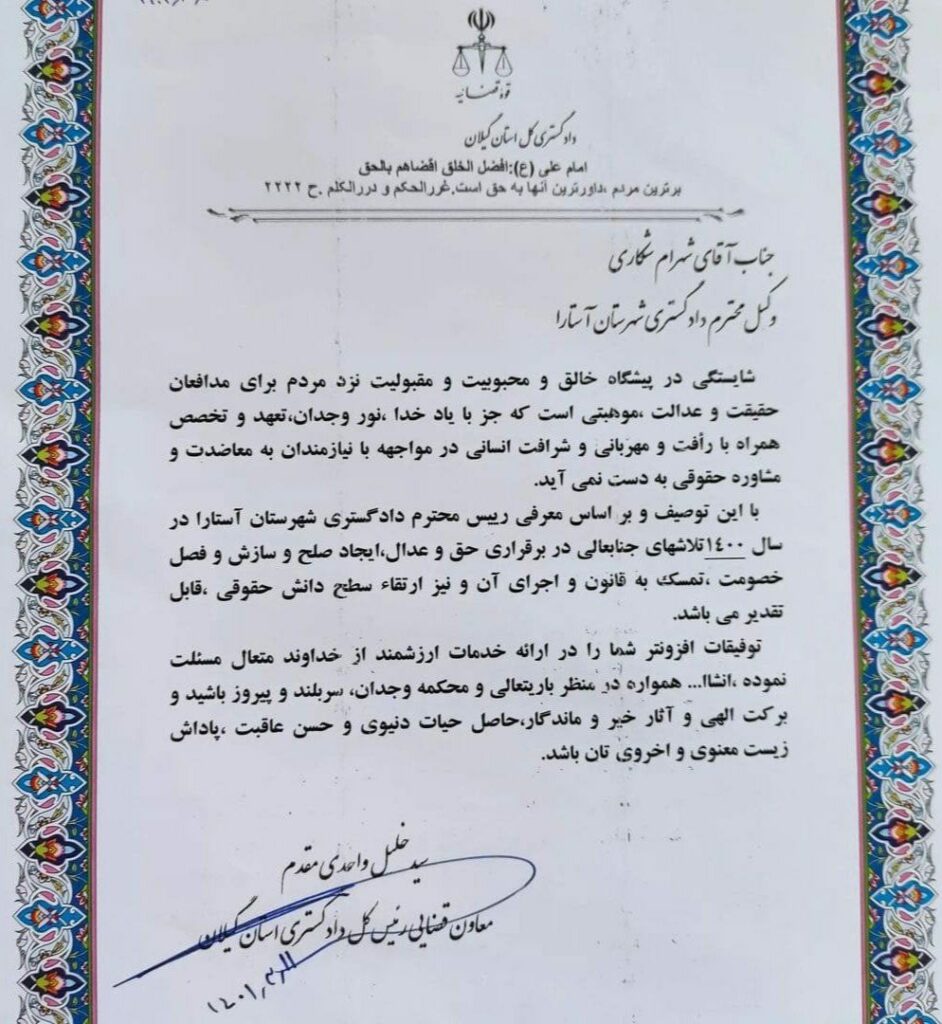 قوه قضائیه
دادگستری کل استان گیلان
امام علی (ع):افضل الخلق اقضاهم بالحق
برترین مردم ،داورترین آنها به حق است.غررالحکم و دررالکلم .ح ۲۲۲۲
جناب آقای شهرام شکاری
وکیل محترم دادگستری شهرستان آستارا
شایستگی در پیشگاه خالق و محبوبیت و مقبولیت نزد مردم برای مدافعان
حقیقت و عدالت ،موهبتی است که جز با یاد خدا ،نور وجدان،تعهد و تخصص
همراه با رأفت و مهربانی و شرافت انسانی در مواجهه با نیازمندان به معاضدت و
مشاوره حقوقی به دست نمی آید.
با این توصیف و بر اساس معرفی رییس محترم دادگستری شهرستان آستارا در
سال ۱۴۰۰تلاشهای جنابعالی در برقراری حق و عدال،ایجاد صلح و سازش و فصل
خصومت ،تمسک به قانون و اجرای آن و نیز ارتقاء سطح دانش حقوقی ،قابل
تقدیر می باشد.
توفیقات افزونتر شما را در ارائه خدمات ارزشمند از خداوند متعال مسئلت
نموده ،انشاا... همواره در منظر باریتعالی و محکمه وجدان، سربلند و پیروز باشید و
برکت الهی و آثار خیر و ماندگار،حاصل حیات دنیوی و حسن عاقبت ،پاداش
زیست معنوی و اخروی تان باشد.
سید خلیل واحدی مقدم
معاون قضایی رئیس کل دادگستری استان گیلان